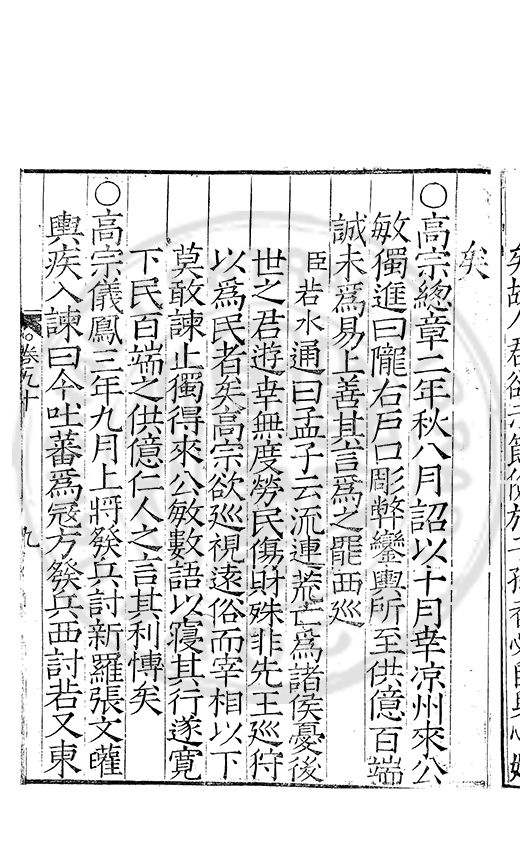 矣
○高宗總章二年秋八月詔以十月幸凉州來公
敏獨進曰隴右戶口彫弊鑾輿所至供億百端
誠未爲易上善其言爲之罷西巡
臣若水通曰孟子云流連荒亡爲諸侯憂後
世之君遊幸無度勞民傷財殊非先王巡狩
以爲民者矣高宗欲巡視遠俗而宰相以下
莫敢諫止獨得來公敏數語以寢其行遂寛
下民百端之供億仁人之言其利博矣
○高宗儀鳳三年九月上將發兵討新羅張文瓘
輿疾入諫曰今吐蕃爲冦方發兵西討若又東
卷九十
九